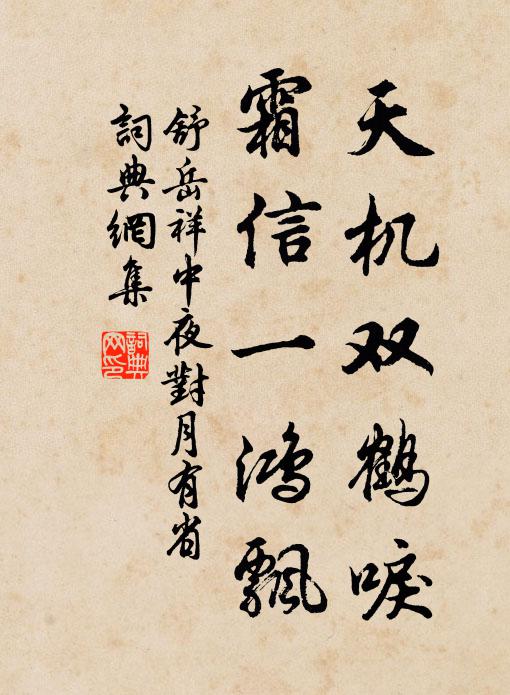 天机双鹤唳
霜信一鸿飘
舒岳祥中夜對月有省
詞典網集
詞典网印